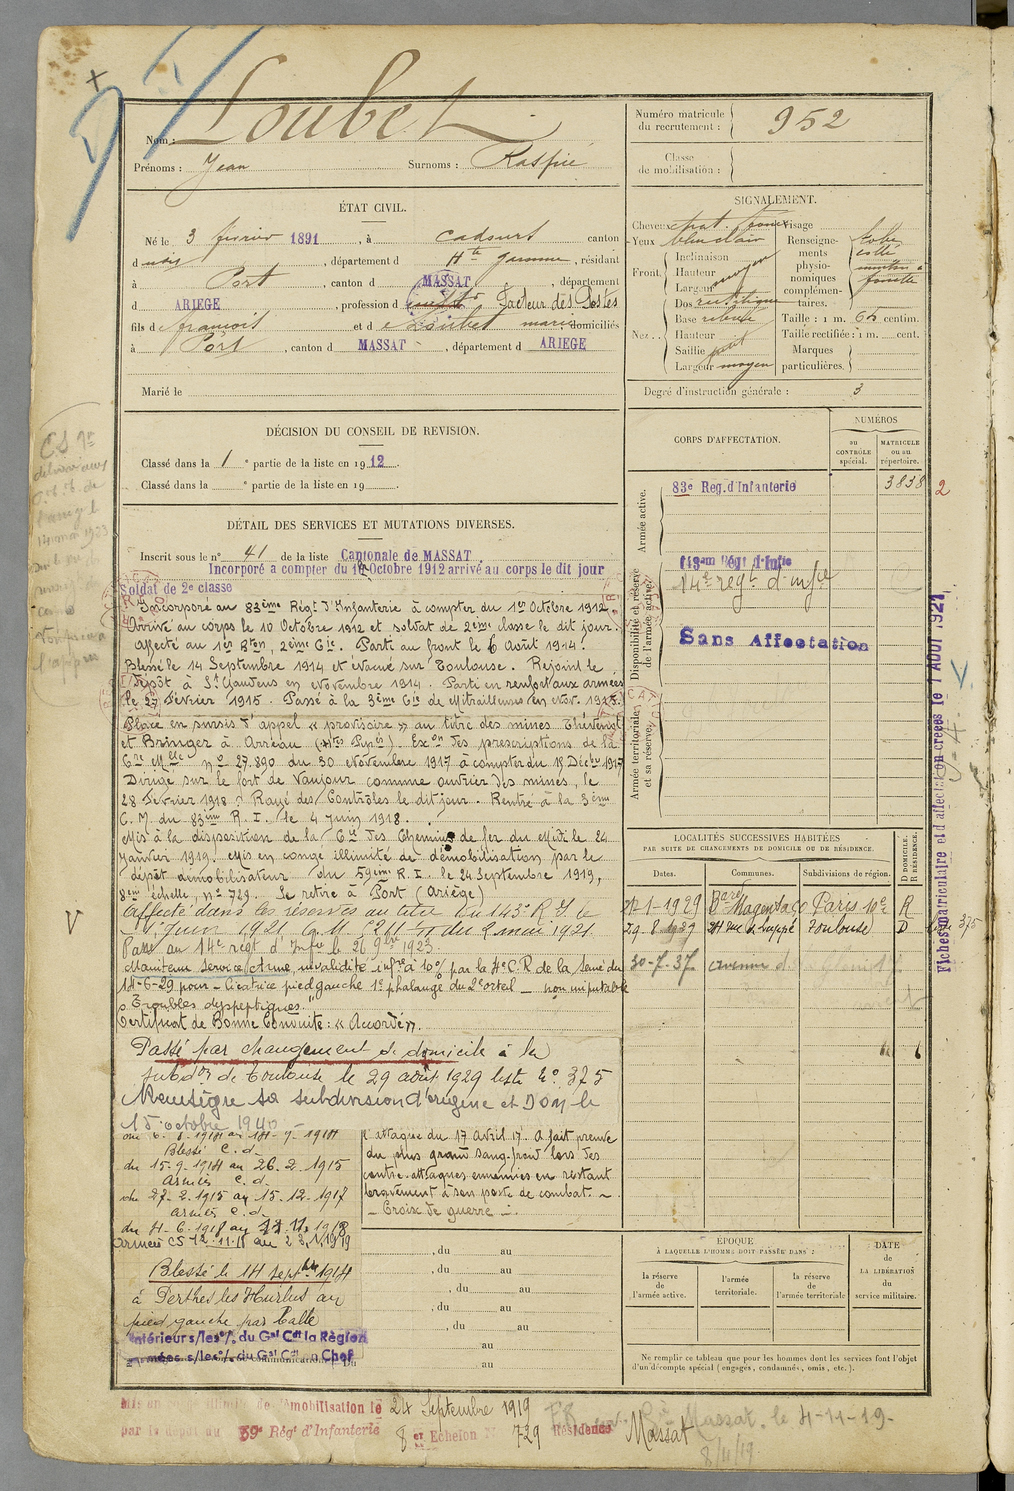 Loubet
Nom :
Prénoms : Jean Surnoms : Raspié
ÉTAT CIVIL.
Né le 3 février 1891, à canton
d , département d Hte Garonne, résidant
à Port, canton d MASSAT, département
d ARIEGE, profession de Facteur des Postes
fils de François et de Loubet Marie domiciliés
à Port, canton d MASSAT, département d ARIEGE
Marié le
DÉCISION DU CONSEIL DE REVISION.
Classé dans la 1e partie de la liste en 1912.
Classé dans la e partie de la liste en 19 .
DÉTAIL DES SERVICES ET MUTATIONS DIVERSES.
Inscrit sous le n° 41 de la liste Cantonale de MASSAT
Incorporé a compter du Octobre 1912 arrivé au corps le dit jour
Soldat de 2e classe
Incorporé au 83ème Régt d'Infanterie à compter du 1er Octobre 1912
Arrivé au corps le 10 Octobre 1912 et soldat de 2ème classe le dit jour.
Affecté au 1er Bton, 2ème Cie. Parti au front le 6 Août 1914.
Blessé le 14 Septembre 1914 et évacué sur Toulouse. Rejoint le
dépôt à St Gaudens en Novembre 1914. Parti en renfort aux armées
le 27 Février 1915. Passé à la 3ème Cie de Mitrailleuses en Nov. 1915.
Placé en sursis d'appel « provisoire » au titre des mines Thévenist
et Bringer à Arreau (Htes Pyrées). Exon des prescriptions de la
Cre Mlle n° 27.890 du 30 Novembre 1917 à compter du 15 Décbre 1917
Dirigé sur le fort de Vaujour comme ouvrier des mines, le
28 Février 1918. Rayé des Contrôles le dit jour. Rentré à la 3ème
C. M. du 83ème R. I. le 4 juin 1918.
Mis à la disposition de la Cie des Chemins de fer du Midi le 24
Janvier 1919. Mis en congé illimité de démobilisation par le
dépôt démobilisateur du 59ème R. I. le 24 Septembre 1919,
8ème échelon, n° 729. Se retire à Port (Ariège)
Affecté dans les réserves au titre du 143e R. I. le
juin 1921 du 2 mai 1921
Passé au 14e régt d'Infie le 26 9bre 1923
Maintenu Service Armé, invalidité infre à 10% par la 4e C.R de la Seine du
14-6-29 pour - Cicatrice pied gauche 1e phalange du 2e orteil - non imputable
Troubles dyspeptiques.
Certificat de Bonne Conduite : « Accordé ».
Passé par changement de domicile à la
subdon de Toulouse le 29 août 1929 liste n° 375
sa subdivision d'origine et Don le
15 octobre 1940 -
du 6-8-1914 au 14-9-1914
Blessé C.d.
du 15-9-1914 au 26-2-1915
Armées C.d.
du 27-2-1915 au 15-12-1917
Armées C.d.
du 4-6-1918 au 11 11 1918
Armées CS 12-11-18 au 23 1 1919
Blessé le 14 Septbre 1914
à Perthes les Hurlus au
pied gauche par balle
Intérieur s/les °/. du Gal Cdt la Région
Armées s/les °/. du Gal Cdt en Chef
l'attaque du 17 Avril 17. A fait preuve
du plus grand sang-froid lors des
contre-attaques ennemies en restant
bravement à son poste de combat. -
- Croix de guerre -.
, du au
, du au
, du au
, du au
, du au
au
au
Mis en congé illimité de démobilisation le 24 Septembre 1919
par le dépôt du 59e Régt d'Infanterie 8e Echelon N° 729 Résidence Massat
Massat. le 4-11-19-
8/11/19
Numéro matricule
du recrutement : 952
Classe
de mobilisation :
SIGNALEMENT.
Cheveux chat. foncé
Yeux bleu clair
Front. Inclinaison
Hauteur moyen
Largeur
Nez.. Dos rectiligne
Base
Hauteur
Saillie petit
Largeur moyen
Visage
Renseignements
physionomiques
complémentaires.
Taille : 1 m. 64 centim.
Taille rectifiée : 1 m. cent.
Marques
particulières.
Degré d'instruction générale : 3
CORPS D'AFFECTATION.
NUMÉROS
au
CONTRÔLE
spécial.
MATRICULE
ou au
répertoire.
Armée active.
83e Reg. d'Infanterie 3838 2
Disponibilité et réserve
de l'armée active.
143em Régt d'Infie
14e régt d'infie
Sans Affectation
Armée territoriale
et sa réserve.
LOCALITÉS SUCCESSIVES HABITÉES
PAR SUITE DE CHANGEMENTS DE DOMICILE OU DE RÉSIDENCE.
Dates. Communes. Subdivisions de région. D DOMICILE. R RÉSIDENCE.
-1-1929 Bard Magenta Paris 10e R
29-8-1939 Toulouse D 375
30-7-37
ÉPOQUE
À LAQUELLE L'HOMME DOIT PASSER DANS :
la réserve
de
l'armée active.
l'armée
territoriale.
la réserve
de
l'armée territoriale
DATE
de
LA LIBÉRATION
du
service militaire.
Ne remplir ce tableau que pour les hommes dont les services font l'objet
d'un décompte spécial (engagés, condamnés, omis, etc.).
Fiches matriculaire et d'affectation créées le 1 AOUT 1921